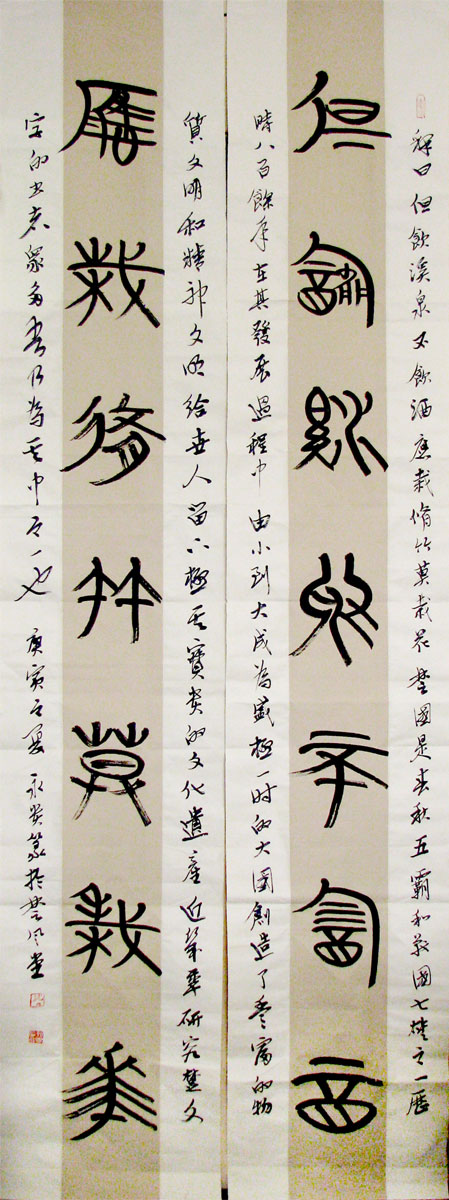 釋曰但飲溪泉不飲酒應栽脩竹莫栽花楚國是春秋五霸和戰國七雄之一歷
但飲溪泉不飲酒
時八百餘年在其發展過程中由小到大成為盛極一時的大國創造了豐富的物
質文明和精神文明給世人留下極其寶貴的文化遺產近研究楚文
應栽脩竹莫栽花
字的書家眾多乃為其中之一也 庚寅之夏 永貴篆於楚風堂